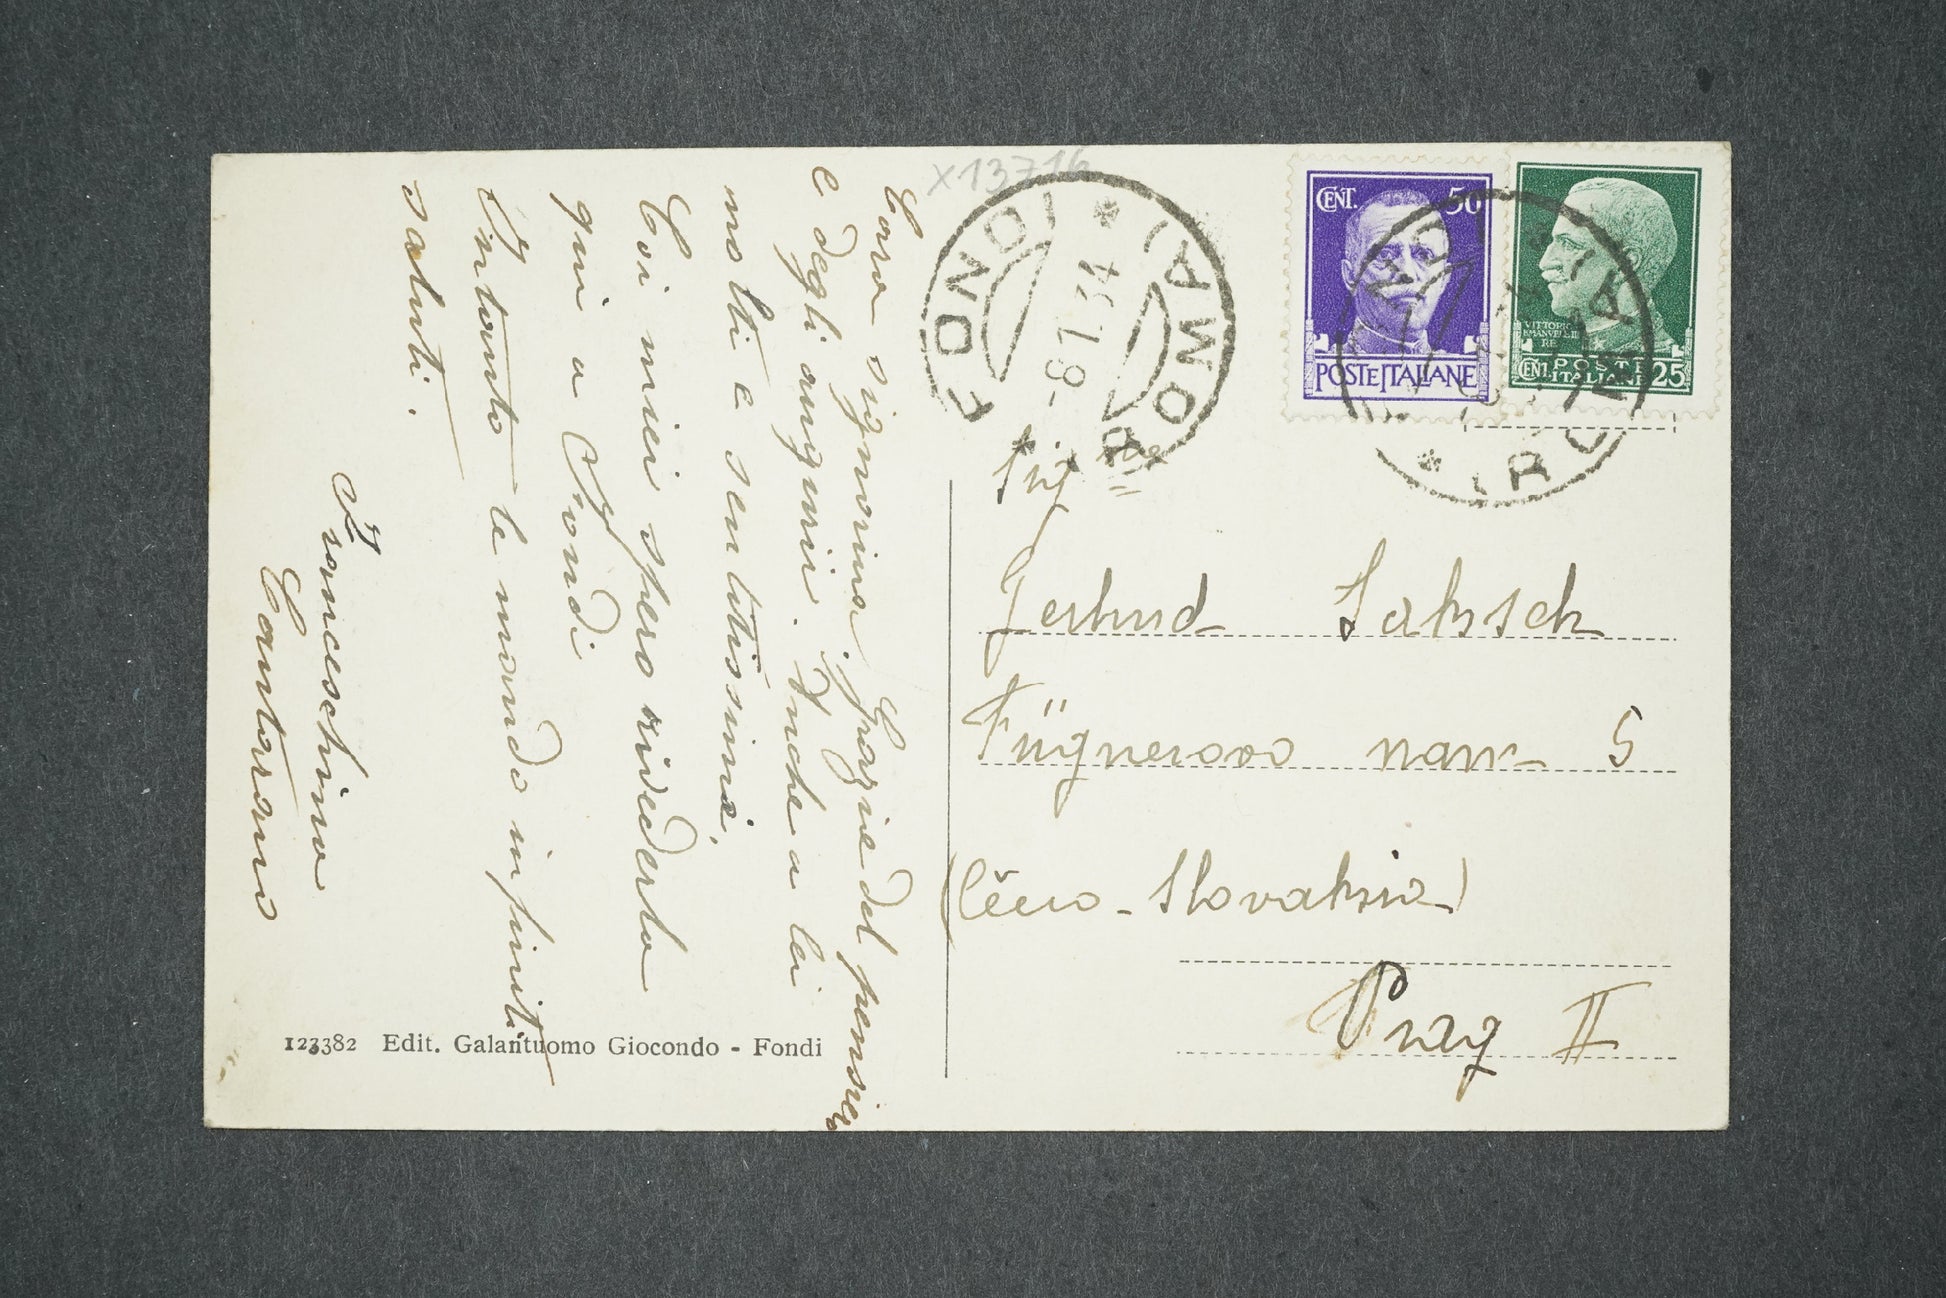 Cara signorina. Grazie del pensiero
e degli auguri. Anche a lei
molti e sentitissimi.
Coi miei spero rivederla
qui a Fondi
Intanto le mando infiniti
saluti.
Franceschino
Cantarano
123382 Edit. Galantuomo Giocondo - Fondi
X13716
FONDI * (ROMA) *
8-1 34
CENT. 50
POSTE ITALIANE
VITTORIO
EMANVELE III
RE
POSTE
CENT. ITALIANE 25
Sig.na
Gertrud Saksch
Fügnerovo nam 5
(Céco-Slovakia)
Prag II